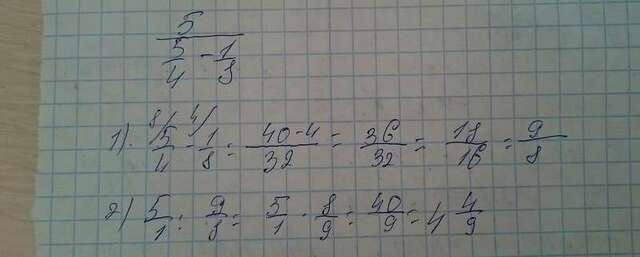 5
5/4 - 1/8
1). 8/ 5/4 - 4/ 1/8 = 40-4/32 = 36/32 = 18/16 = 9/8
2) 5/1 : 9/8 = 5/1 · 8/9 = 40/9 = 4 4/9